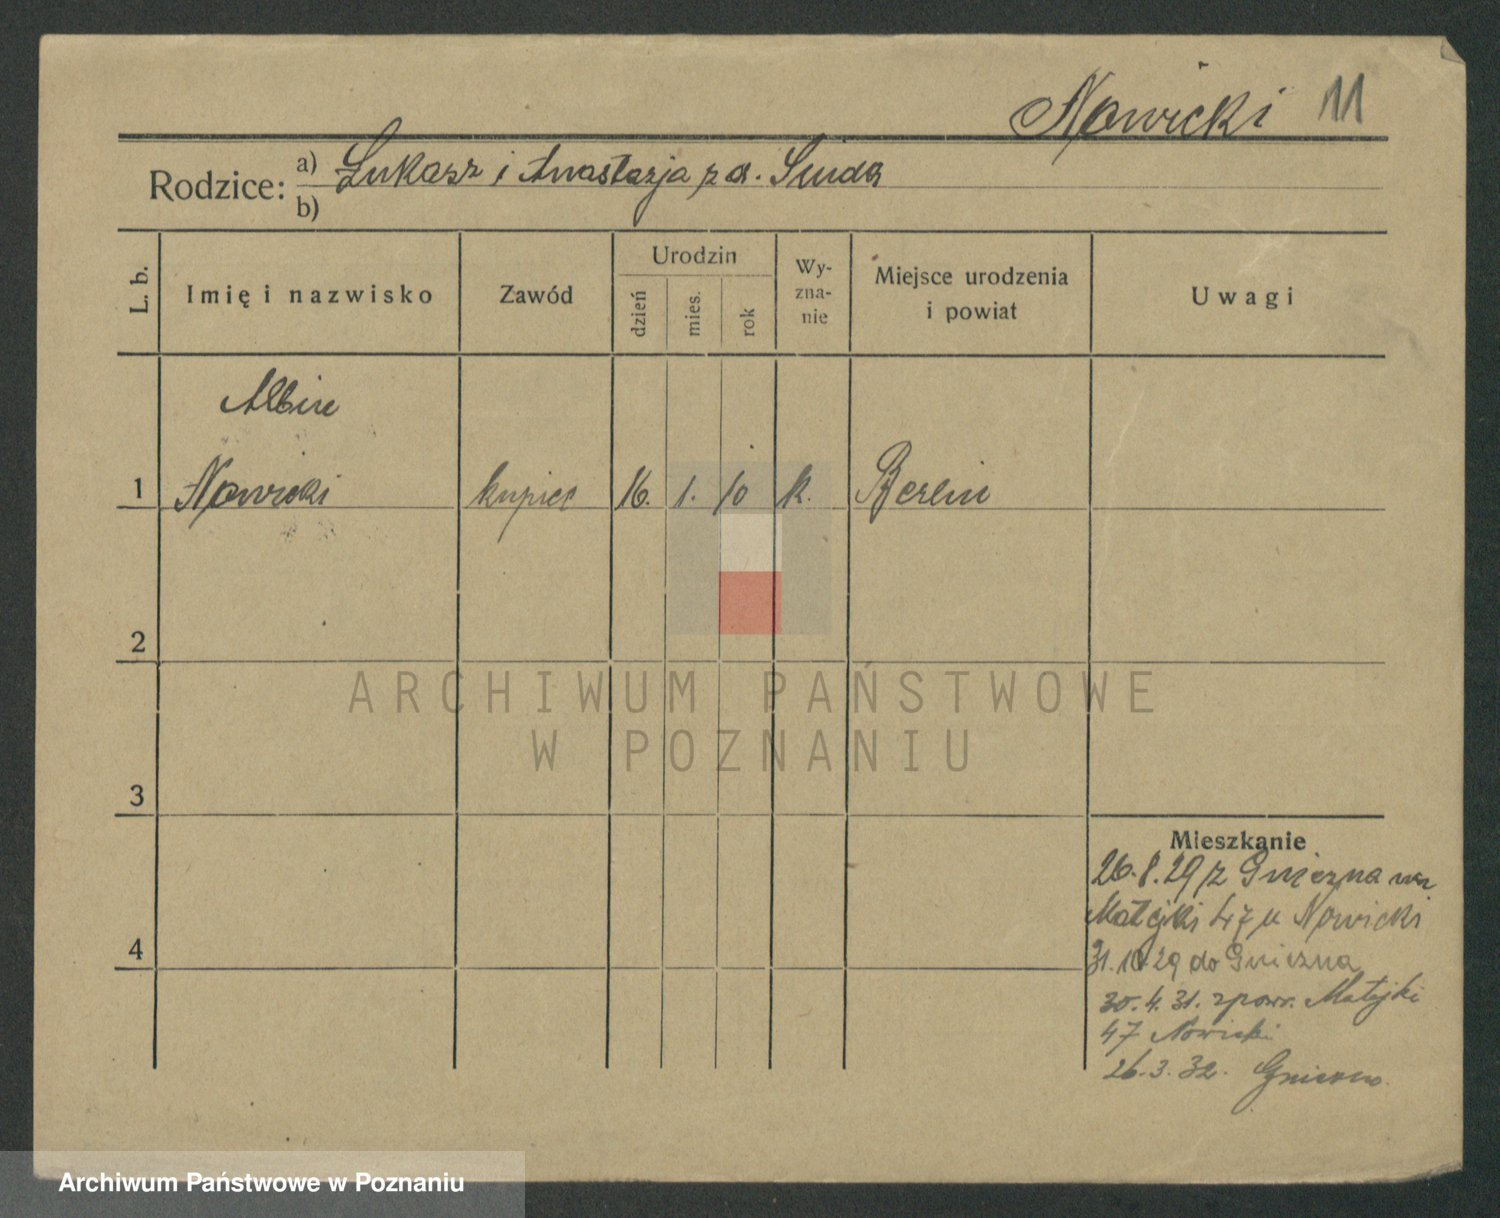 Nowicki 11
Rodzice: a) Łukasz i Anastazja z d.
b)
L. b.
Imię i nazwisko
Zawód
Urodzin
dzień
mies.
rok
Wy-
zna-
nie
Miejsce urodzenia
i powiat
Uwagi
Albin
1 Nowicki kupiec 16. 1. 10 k. Berlin
2
ARCHIWUM PAŃSTWOWE
W POZNANIU
3
Mieszkanie
26.8.29 z Gniezna
Matejki 47 u Nowicki
4
31.10.29 do Gniezna
30.4.31. zpow. Matejki
47 Nowicki
26.3.32. Gniezno.
Archiwum Państwowe w Poznaniu